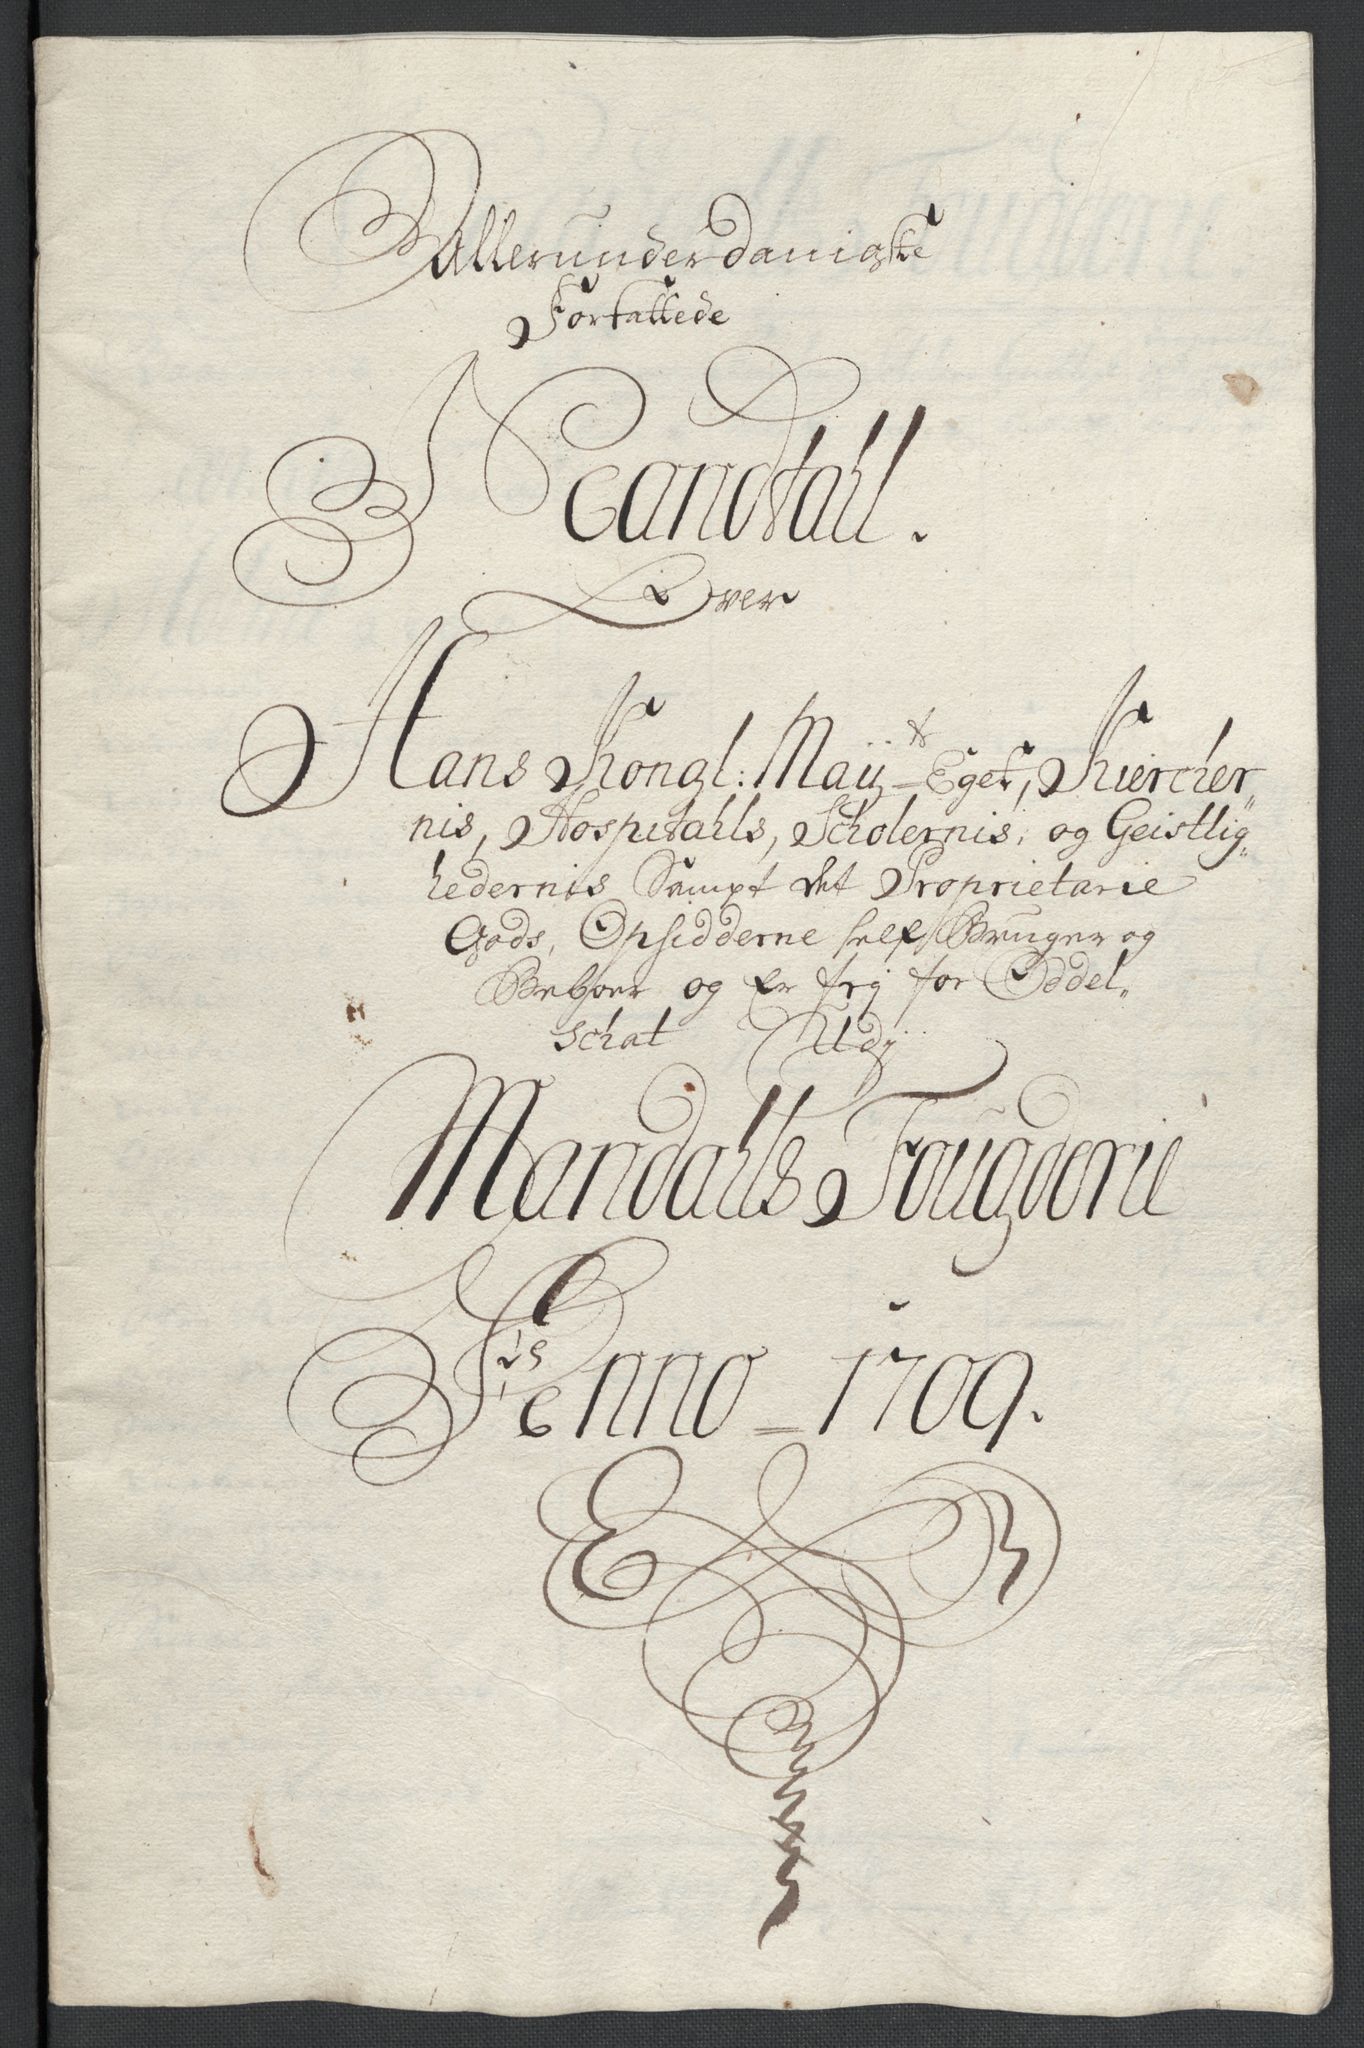 Allerunderdanigste
Forfattede
Mandtall.
Over
Hans Kongl: Maÿtz Eget, Kiercher„
nis, Hospitahls, Scholernis, og Geistlig„
hedernis Sampt det Proprietarie
Gods, Opsidderne self Bruger og
Beboer og Er frj for Oddel„
schat Udj
Mandahls Fougderie
Anno = 1709.